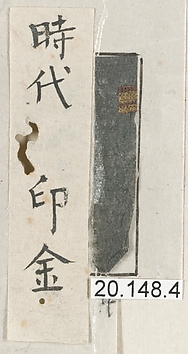 時代
印金
20.148.4